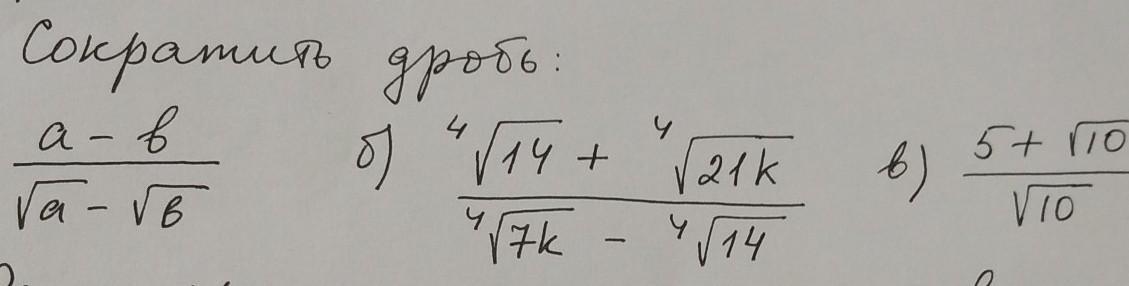 Сократить дробь:
(a - b)/(√a - √b) б) (⁴√14 + ⁴√21k)/(⁴√7k - ⁴√14) в) (5 + √10)/√10